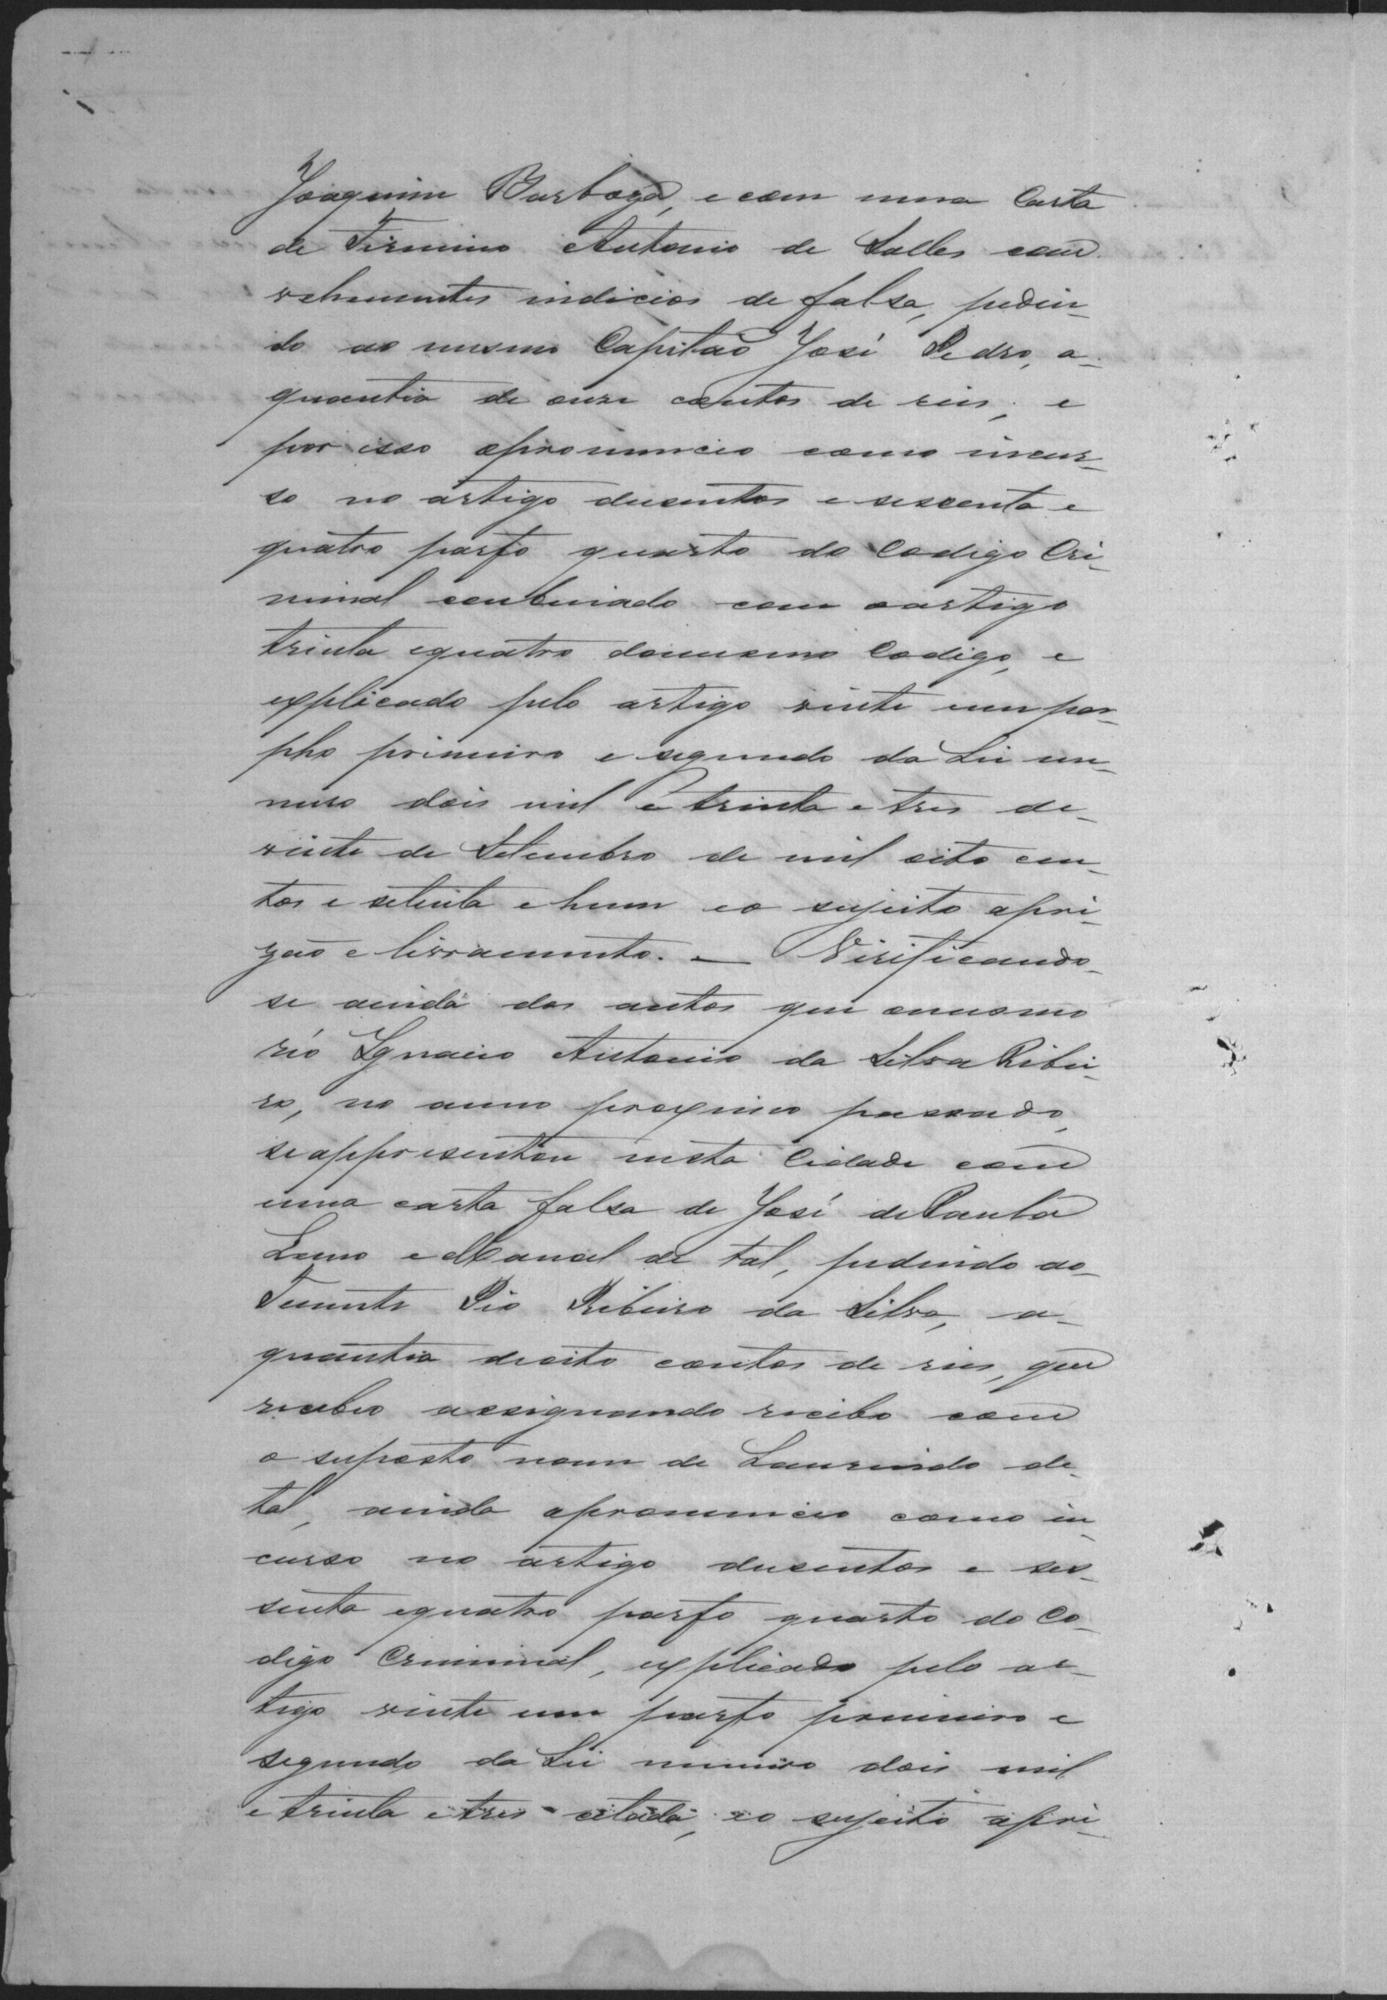 Joaquim Barboza, e com uma Carta
de Firmino Antonio de Salles com
vehementes indicios de falsa, pedin-
do ao mesmo Capitão José Pedro, a-
quantia de onze contos de reis, e
por isso opronuncio como incur-
so no artigo dusentos e sessenta e
quatro parfo quarto do Codigo Cri-
minal conbinado com oartigo
trinta equatro domesmo Codigo, e
explicado pelo artigo vinte um par-
pho primeiro e segundo da Lei nu-
mero dois mil e trinta e tres de-
vinte de Setembro de mil oito cen-
tos e setenta e hum eo sujeito apri-
zão e livramento. — Virificando-
se ainda dos autos que omesmo
réo Ignacio Antonio da Silva Ribei-
ro, no anno proximo passado,
seappresentou nesta Cidade com
uma carta falsa de José de Paula
Lemo e Manoel de tal, pedindo ao-
Tenente Pio Ribeiro da Silva, a-
quantia deoito contos de reis, que
recebeo assignando recibo com
o suposto nome de Laurindo de-
tal, ainda opronuncio como in-
curso no artigo dusentos e ses-
senta equatro parfo quarto do Co-
digo Criminal, explicado pelo ar-
tigo vinte um parfo primeiro e
segundo da Lei numero dois mil
e trinta e tres citada, eo sujeito apri-